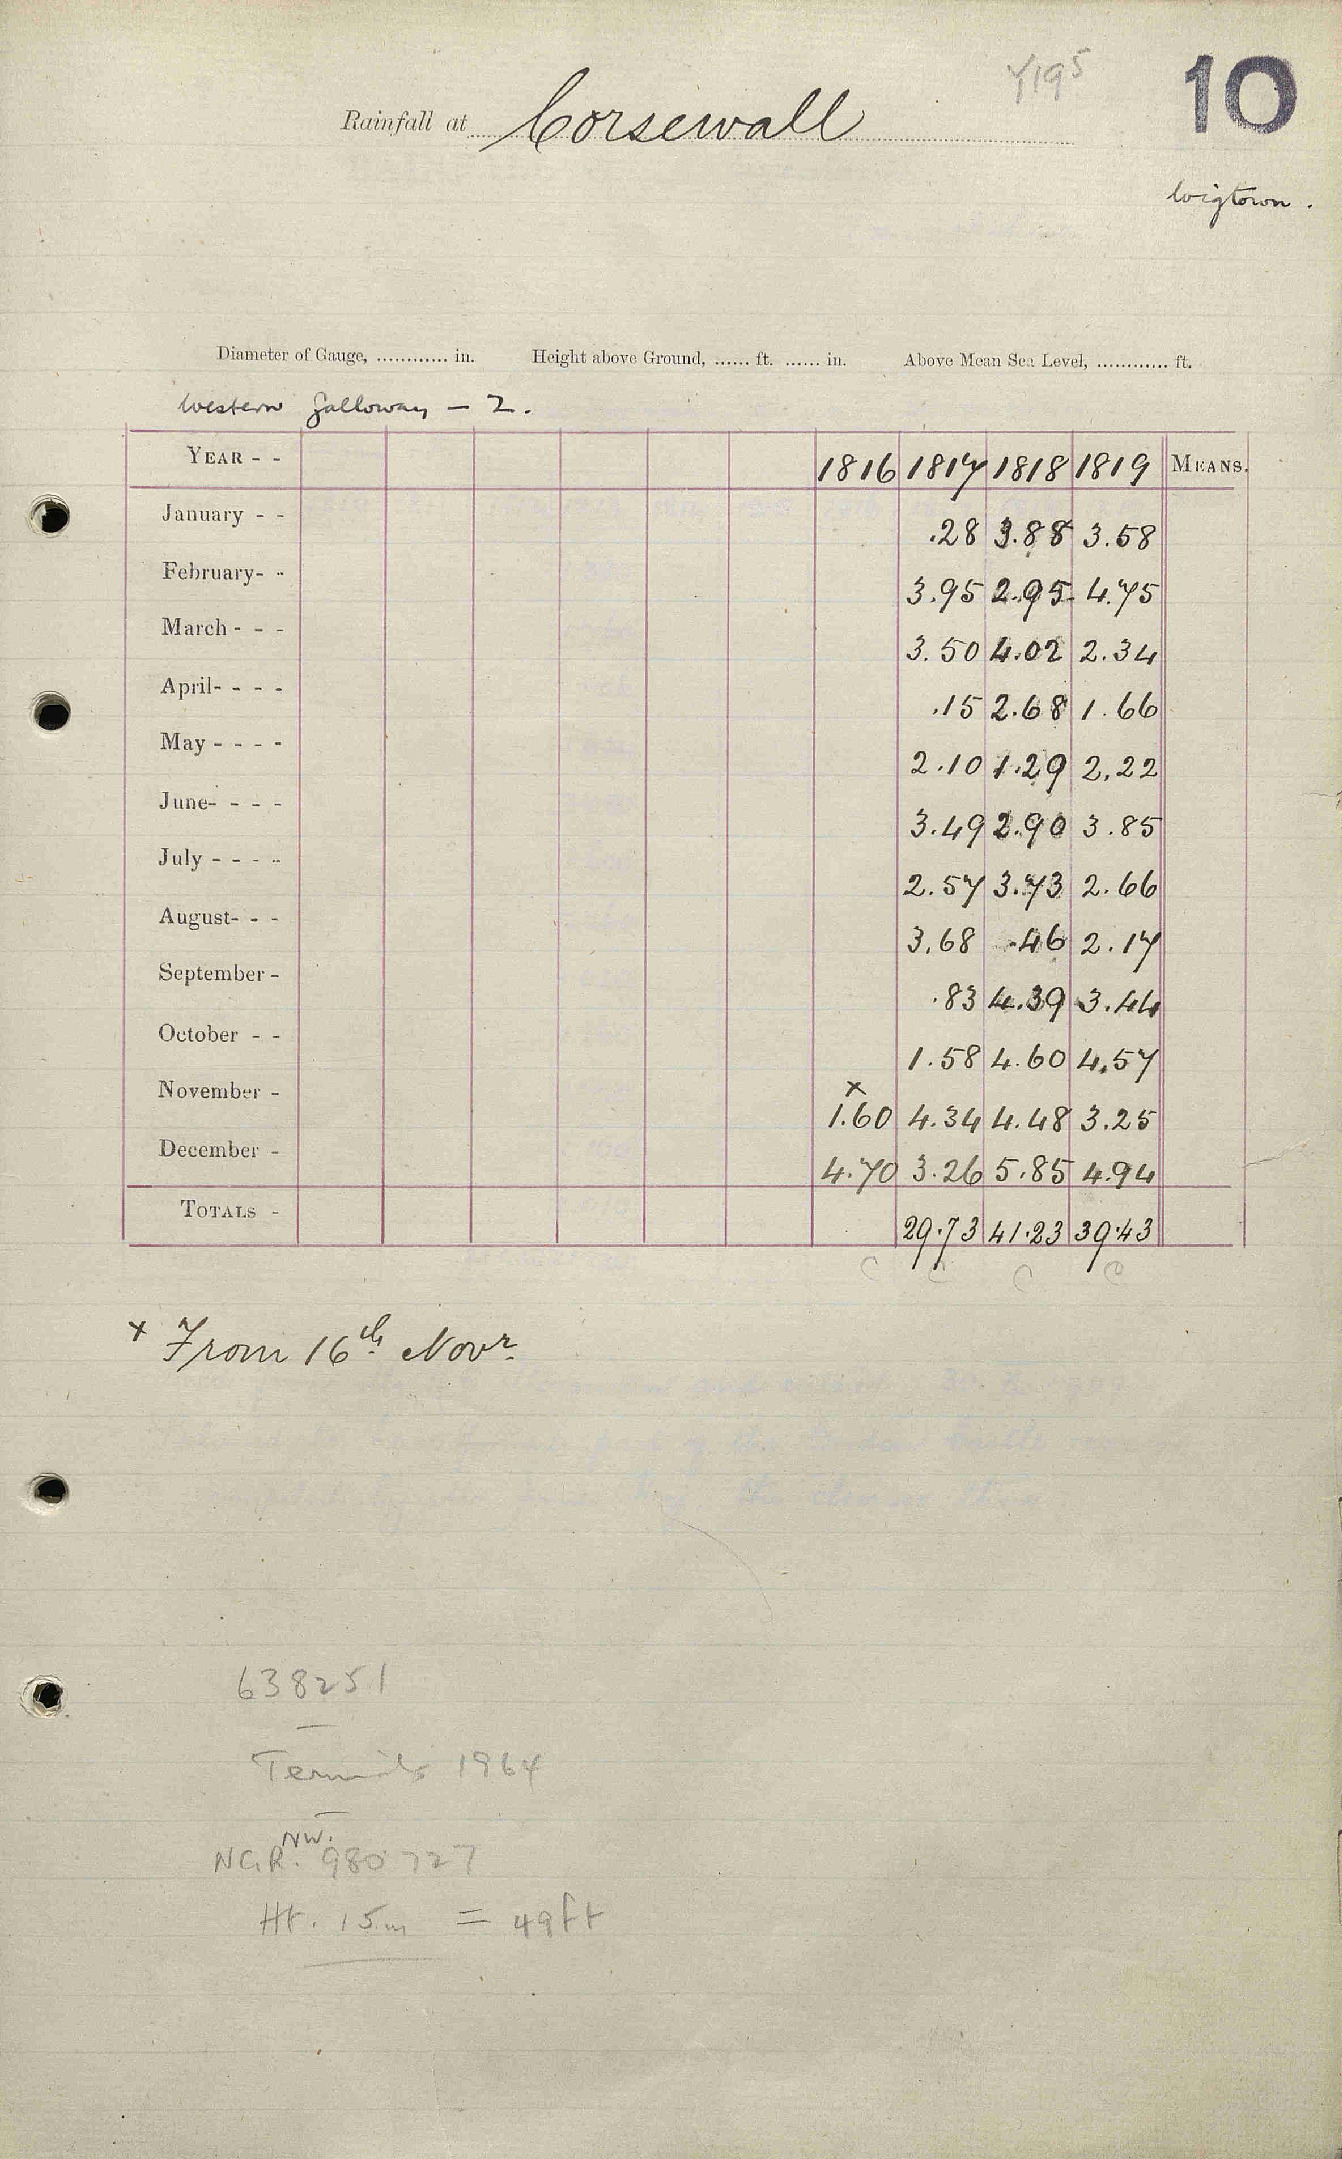 Y195
10
Rainfall at Corsewall
Wigtown.
Diameter of Gauge, ............ in. Height above Ground, ...... ft. ...... in. Above Mean Sea Level, ............ ft.
Western Galloway — 2.
YEAR - - 1816 1817 1818 1819 MEANS.
January - - .28 3.88 3.58
February- - 3.95 2.95 4.75
March - - - 3.50 4.02 2.34
April- - - - .15 2.68 1.66
May - - - - 2.10 1.29 2.22
June- - - - 3.49 2.90 3.85
July - - - - 2.57 3.73 2.66
August- - - 3.68 .46 2.17
September - .83 4.39 3.44
October - - 1.58 4.60 4.57
x
November - 1.60 4.34 4.48 3.25
December - 4.70 3.26 5.85 4.94
TOTALS - 29.73 41.23 39.43
C C C C
x From 16th Novr.
638251
1964
NW.
NGR. 980727
Ht. 15m = 49ft